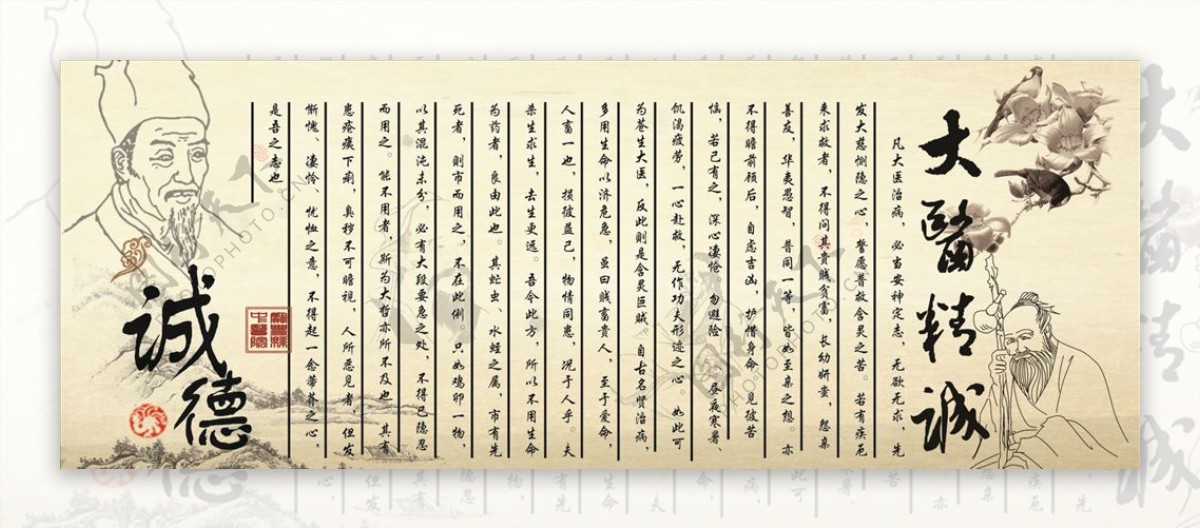 大醫精诚
凡大医治病，必当安神定志，无欲无求，先
发大慈恻隐之心，誓愿普救含灵之苦。若有疾厄
来求救者，不得问其贵贱贫富，长幼妍蚩，怨亲
善友，华夷愚智，普同一等，皆如至亲之想。亦
不得瞻前顾后，自虑吉凶，护惜身命。见彼苦
恼，若己有之，深心凄怆。勿避险 、昼夜寒暑、
饥渴疲劳，一心赴救，无作功夫形迹之心。如此可
为苍生大医，反此则是含灵巨贼。自古名贤治病，
多用生命以济危急，虽曰贱畜贵人，至于爱命，
人畜一也，损彼益己，物情同患，况于人乎。夫
杀生求生，去生更远。吾今此方，所以不用生命
为药者，良由此也。其虻虫、水蛭之属，市有先
死者，则市而用之，不在此例。只如鸡卵一物，
以其混沌未分，必有大段要急之处，不得已隐忍
而用之。能不用者，斯为大哲亦所不及也。其有
患疮痍下痢，臭秽不可瞻视，人所恶见者，但发
惭愧、凄怜、忧恤之意，不得起一念蒂芥之心，
是吾之志也
诚德